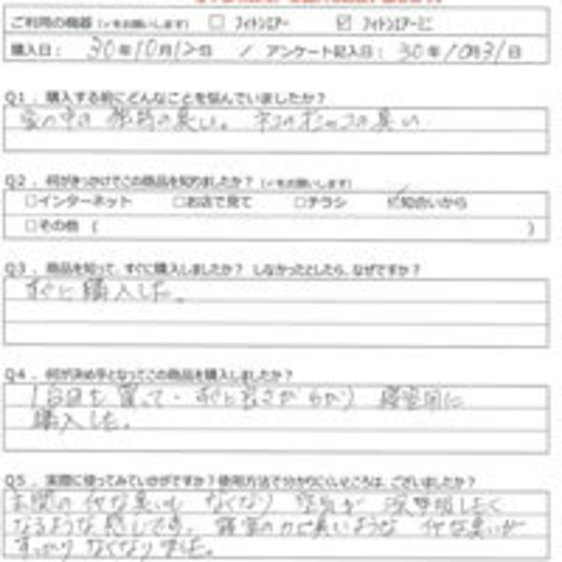 ご利用の機器（✓をお願いします） □ フィトンエアー ☑ フィトンエアーミニ
購入日： 30年10月12日 ／ アンケート記入日： 30年10月31日
Q1．購入する前にどんなことを悩んでいましたか？
家の中の 臭い。 ネコのオシッコの臭い
Q2．何がきっかけでこの商品を知りましたか？（✓をお願いします）
□インターネット □お店で見て □チラシ ☑知合いから
□その他（ ）
Q3．商品を知って、すぐに購入しましたか？ しなかったとしたら、なぜですか？
すぐに購入した。
Q4．何が決め手となってこの商品を購入しましたか？
1台目を買って・すぐに良さがわかり 寝室用に
購入した。
Q5．実際に使ってみていかがですか？使用方法で分かりにくいところは、ございましたか？
玄関の 臭いも なくなり 空気が 深呼吸したく
なるような感じです。 寝室の ような 臭いが
すっかりなくなりました。